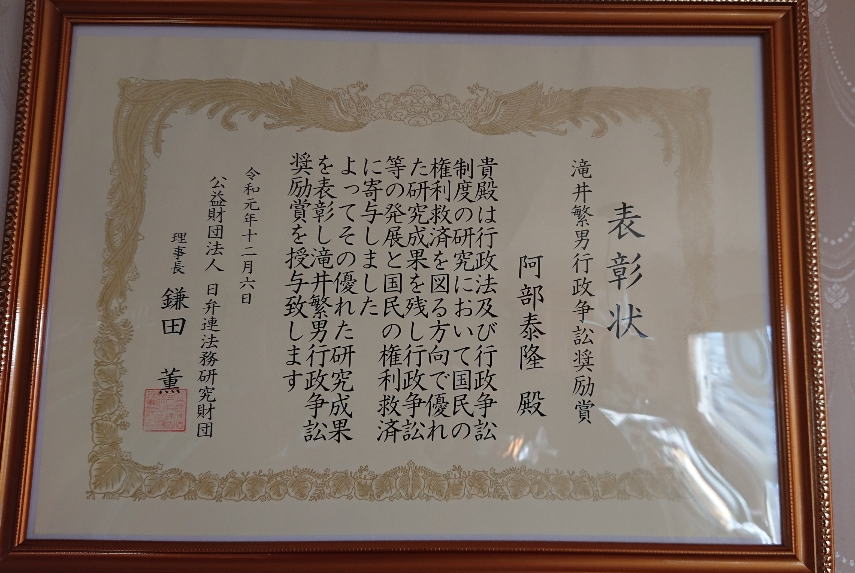 表彰状
滝井繁男行政争訟奨励賞
阿部泰隆 殿
貴殿は行政法及び行政争訟
制度の研究において国民の
権利救済を図る方向で優れ
た研究成果を残し行政争訟
等の発展と国民の権利救済
に寄与しました
よってその優れた研究成果
を表彰し滝井繁男行政争訟
奨励賞を授与致します
令和元年十二月六日
公益財団法人 日弁連法務研究財団
理事長 鎌田 薫